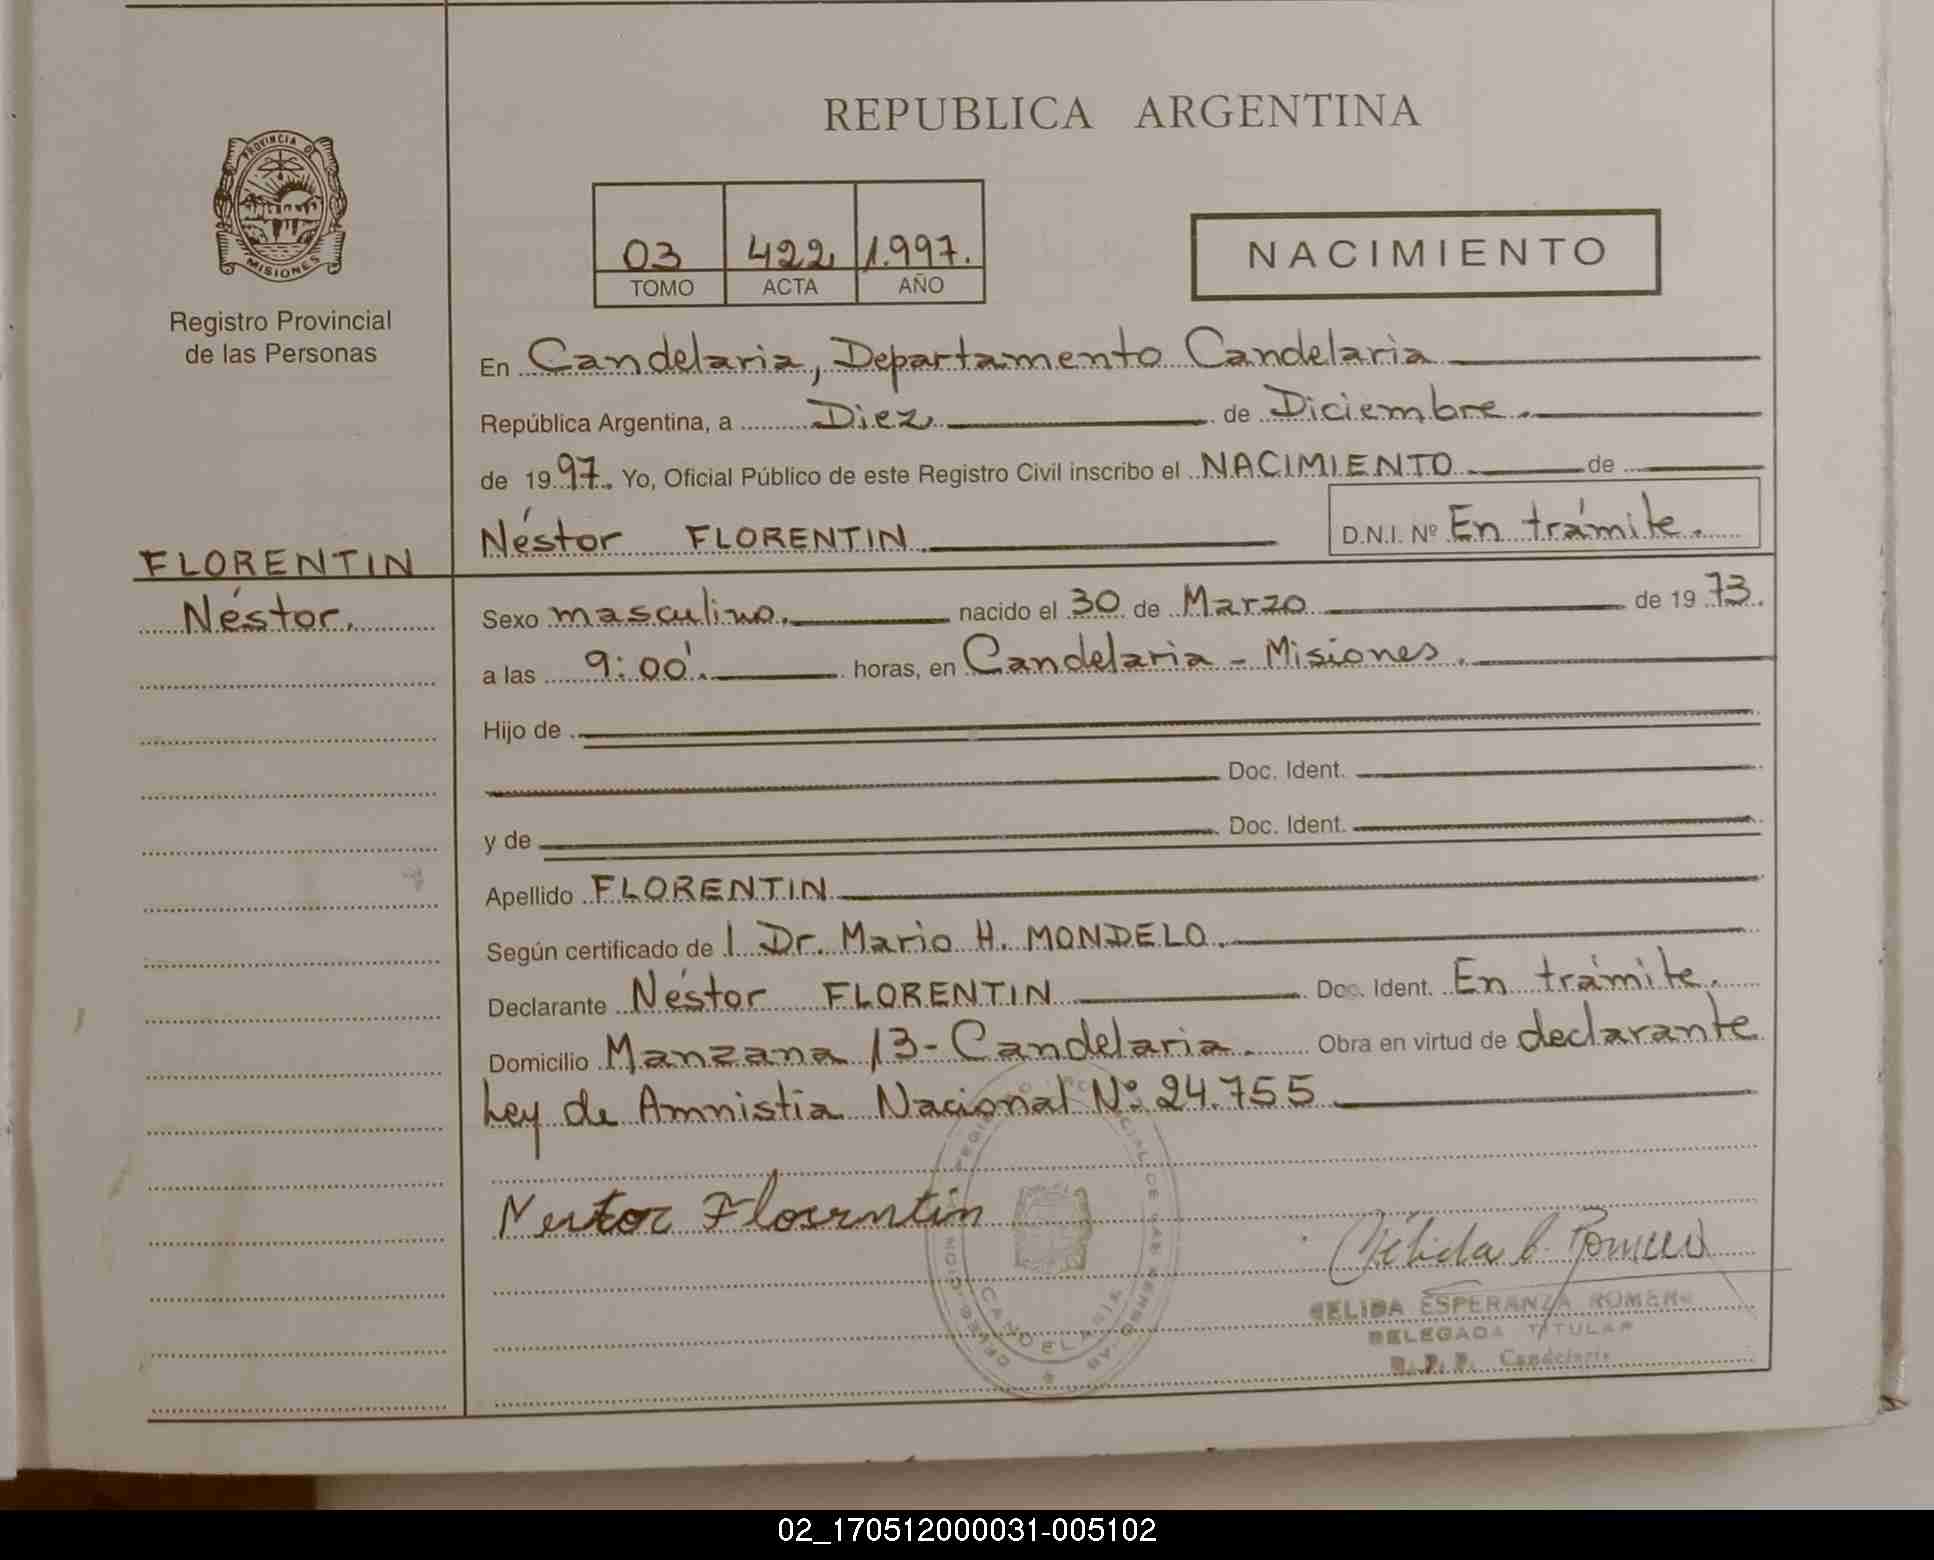 REPUBLICA ARGENTINA
PROVINCIA DE
MISIONES
Registro Provincial
de las Personas
03 422 1.997.
TOMO ACTA AÑO
NACIMIENTO
En Candelaria, Departamento Candelaria
República Argentina, a Diez de Diciembre.
de 1997. Yo, Oficial Público de este Registro Civil inscribo el NACIMIENTO de
Néstor FLORENTIN D.N.I. Nº En trámite.
FLORENTIN
Néstor.
Sexo masculino. nacido el 30 de Marzo de 1973.
a las 9:00'. horas, en Candelaria - Misiones.
Hijo de
Doc. Ident.
y de Doc. Ident.
Apellido FLORENTIN
Según certificado de l Dr. Mario H. MONDELO.
Declarante Néstor FLORENTIN Doc. Ident. En trámite.
Domicilio Manzana 13 - Candelaria. Obra en virtud de declarante
Ley de Amnistia Nacional Nº 24.755
Nestor Florentin
CANDELARIA
CELIDA ESPERANZA ROMERO
DELEGADA TITULAR
R. P. P. Candelaria
02_170512000031-005102